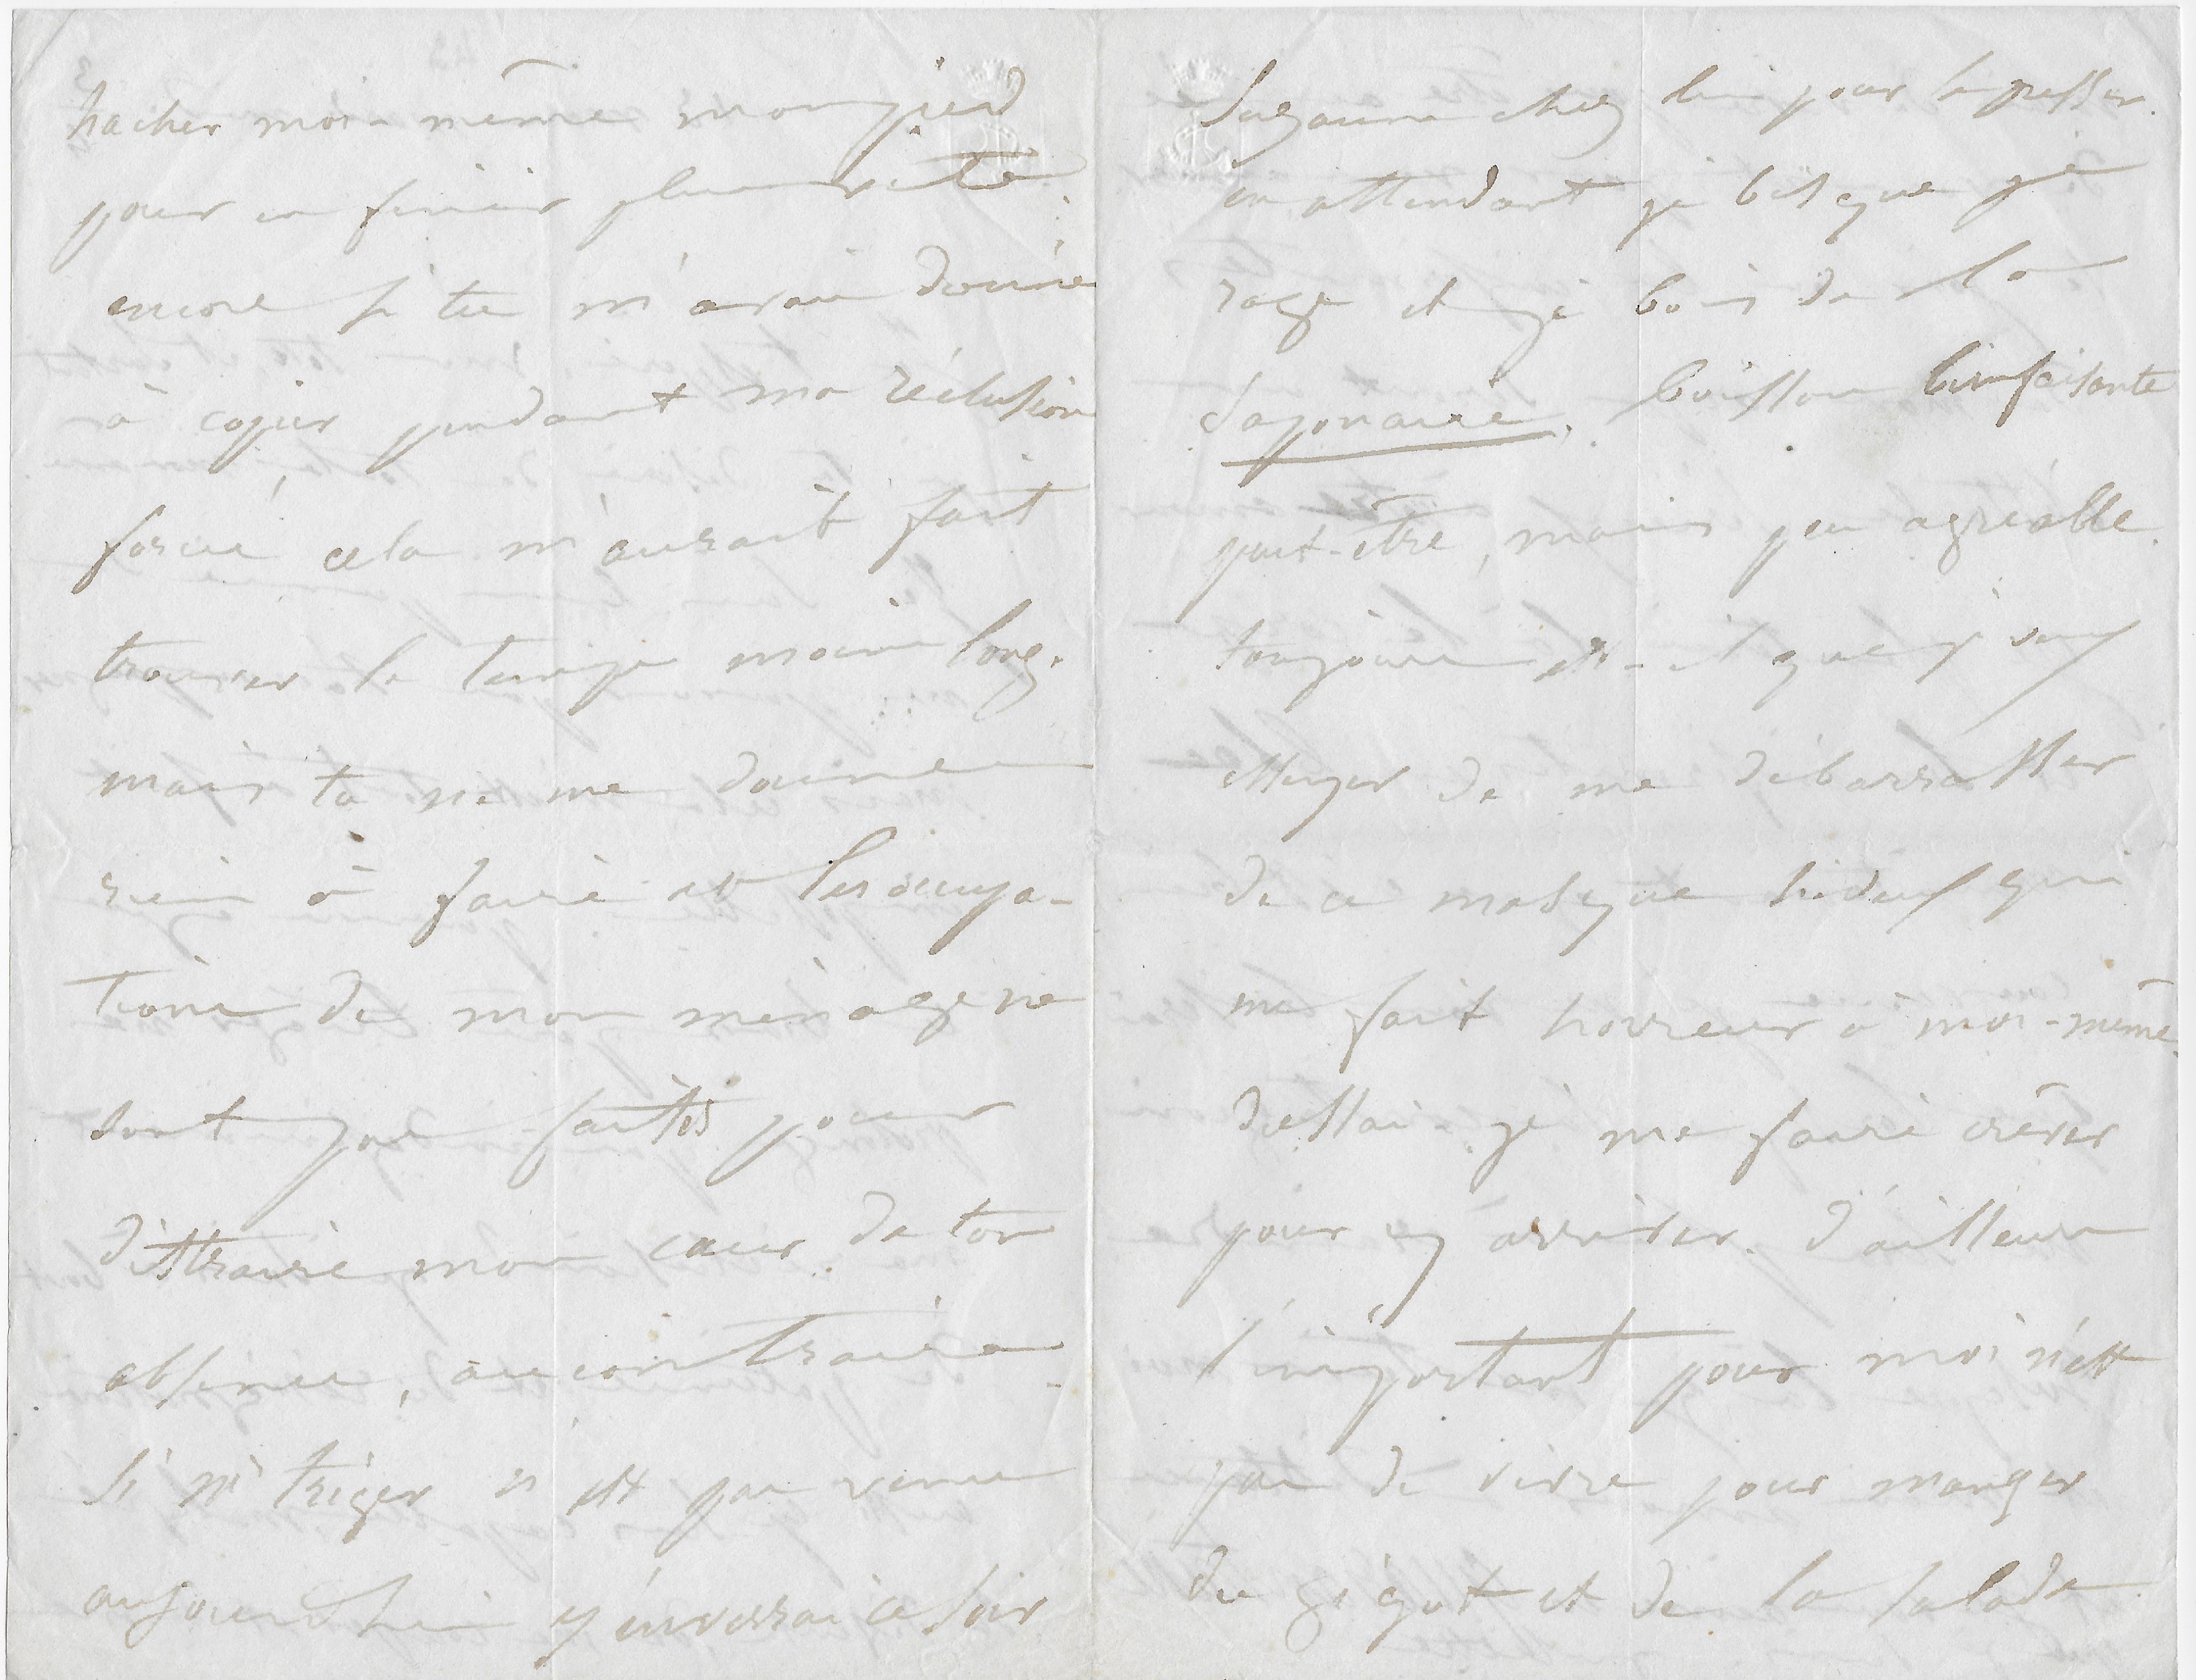 hacher moi-même mon pied
pour en finir plus vite.
encore si tu m'avais donné
à copier pendant ma réclusion
forcée cela m'aurait fait
trouver le temps moins long.
mais tu ne me donnes
rien à faire et les occupa-
tions de mon ménage ne
sont pas faites pour
distraire mon cœur de ton
absence, au contraire.
Si Mr Triger n'est pas venu
aujourd'hui j'enverrai ce soir
Suzanne chez lui pour le presser.
en attendant je bisque je
rage et je bois de la
Saponaire, boisson bienfaisante
peut-être, mais peu agréable.
toujours est-il que je veux
essayer de me débarrasser
de ce masque hideux qui
me fait horreur à moi-même.
dussai-je me faire crever
pour y arriver. d'ailleurs
l'important pour moi n'est
pas de vivre pour manger
du gigot et de la salade